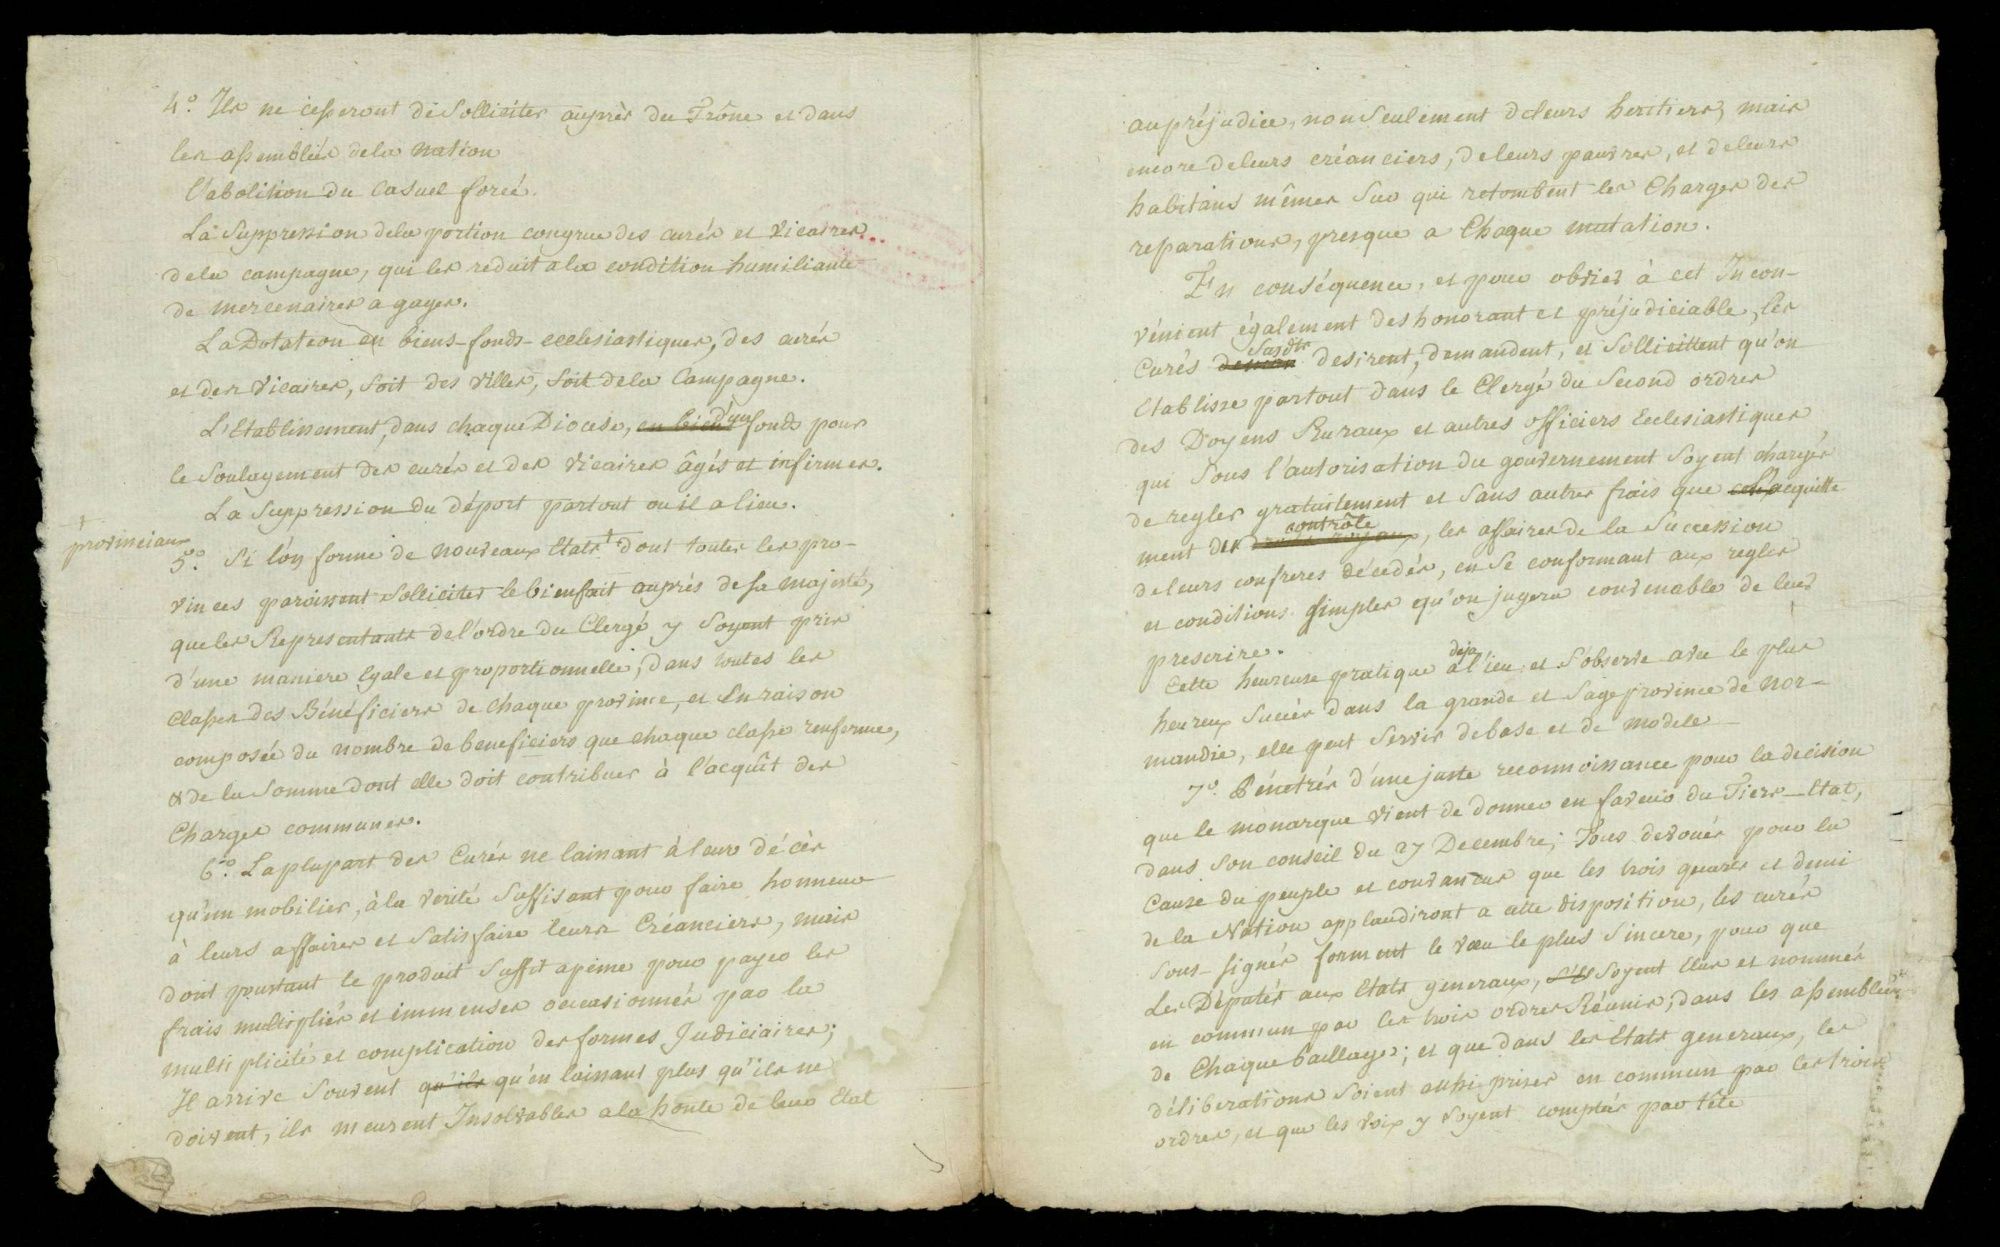 4.° Ils ne cesseront de Solliciter auprès du Trône et dans
les assemblées dela nation
l'abolition du Casuel forcé.
La Suppression dela portion congrue des curés et vicaires
dela campagne, qui les reduit ala condition humiliante
de mercenaires a gages.
La Dotation en biens-fonds-ecclesiastiques, des curés
et des vicaires, soit des villes, soit dela Campagne.
L'Etablissement, dans chaque Diocèse, en bien d'un fonds pour
le Soulagement des curés et des vicaires âgés et infirmes.
La Suppression du déport partout ou il a lieu.
+
provinciaux
5.° Si l'on forme de nouveaux Etats + dont toutes les pro-
vinces paroissent solliciter le bienfait auprès de sa majesté,
que les Representants del'ordre du Clergé y soyent pris
d'une maniere Egale et proportionnelle, dans toutes les
Classes des Bénéficiers de chaque province, et En raison
composée du nombre de beneficiers que chaque classe renferme,
& de la Somme dont elle doit contribuer à l'acquît des
Charges communes.
6.° La plupart des Curés ne laissant à leur décès
qu'un mobilier, à la verité Suffisant pour faire honneur
à leurs affaires et Satisfaire leurs Créanciers, mais
dont pourtant le produit Suffit apeine pour payer les
frais multipliés et immenses occasionnés par la
multiplicité et complication des formes Judiciaires;
Il arrive Souvent qu'ils qu'en laissant plus qu'ils ne
doivent, ils meurent Insolvables a la honte de leur Etat
au préjudice, non Seulement deleurs heritiers, mais
encore deleurs créanciers, deleurs pauvres, et deleurs
habitans mêmes Sur qui retombent les Charges des
reparations, presque a Chaque mutation.
En conséquence, et pour obvier à cet Incon-
vénient également deshonorant et préjudiciable, les
Curés Susdts desirent, demandent, et Sollicittent qu'on
Etablisse partout dans le Clergé du Second ordre
des Doyens Ruraux et autres officiers Ecclesiastiques,
qui Sous l'autorisation du gouvernement Soyent chargés
de regler gratuitement et Sans autres frais que acquitte
ment des contrôle, les affaires de la Succession
deleurs confreres décédés, en Se conformant aux regles
et conditions simples qu'on jugera convenable de leur
prescrire.
Cette heureuse pratique déja a lieu, et S'observe avec le plus
heureux Succès dans la grande et Sage province de Nor-
mandie, elle peut Servir debase et de modele
7.° Pénétrés d'une juste reconnoissance pour la decision
que le monarque vient de donner en faveur du Tiers-Etat,
dans Son conseil du 27 Decembre; Tous devoués pour la
Cause du peuple et convaincus que les trois quarts et demi
de la Nation applaudiront a cette disposition, les curés
Sous-signés forment le vœu le plus Sincere, pour que
Les Députés aux Etats generaux, Soyent Elus et nommés
en commun par les trois ordres Réunis, dans les assemblées
de Chaque bailliage; et que dans les Etats generaux, les
déliberations Soient aussi prises en commun par les trois
ordres, et que les voix y Soyent comptés par tête